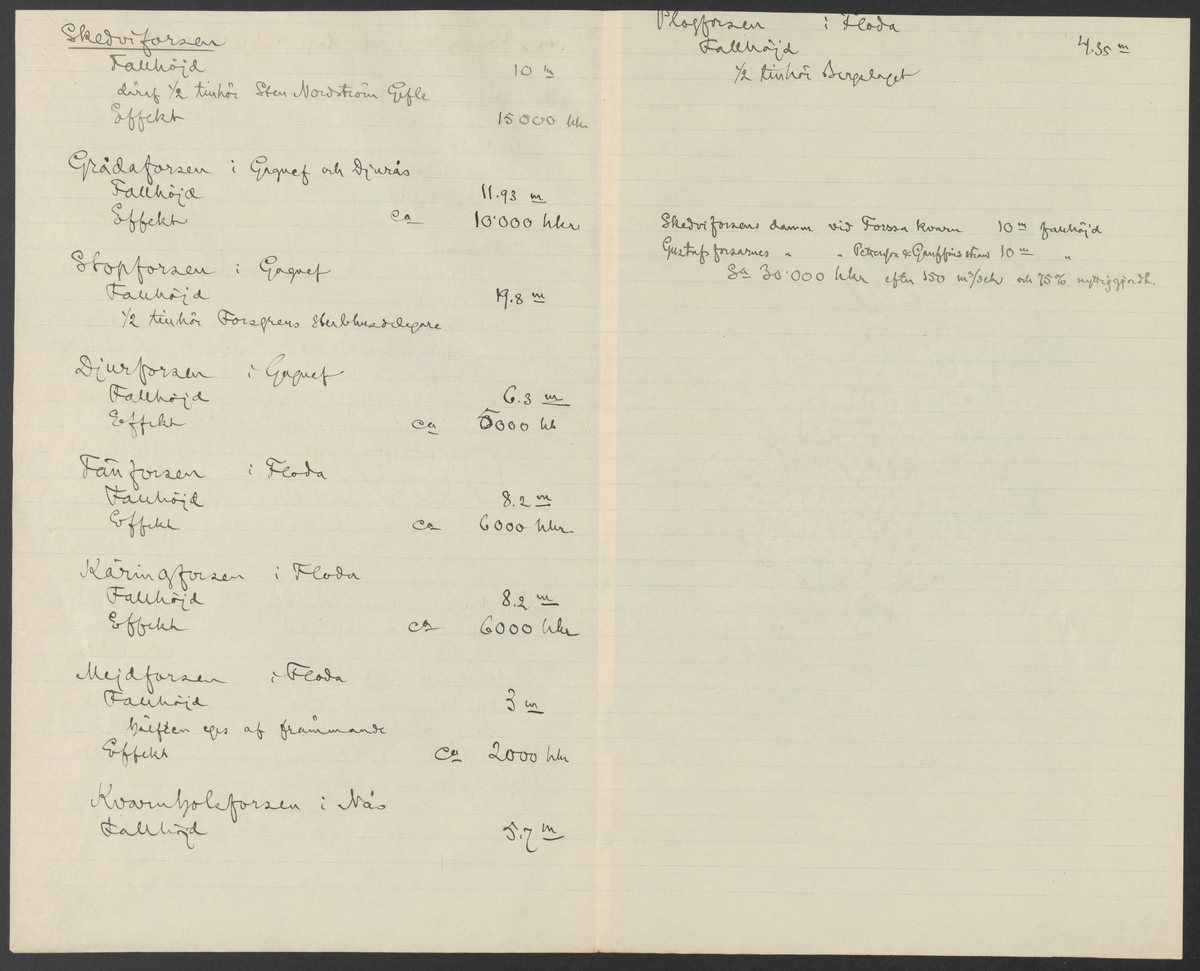 Skedviforsen
Fallhöjd 10 m
däraf 1/2 tillhör Sten Nordström Gefle
Effekt 15000 hkr
Grådaforsen i Gagnef och Djurås
Fallhöjd 11.93 m
Effekt ca 10'000 hkr
Stopforsen i Gagnef
Fallhöjd 19.8 m
1/2 tillhör Forsgrens Sterbhusdelegare
Djurforsen i Gagnef
Fallhöjd 6.3 m
Effekt ca 5000 hk
Fänforsen i Floda
Fallhöjd 8.2 m
Effekt ca 6000 hkr
Käringforsen i Floda
Fallhöjd 8.2 m
Effekt ca 6000 hkr
Mejdforsen i Floda
Fallhöjd 3 m
hälften eges af främmande
Effekt ca 2000 hkr
Kvarnholsforsen i Nås
Fallhöjd 5.7 m
Plogforsen i Floda
Fallhöjd 4.35 m
1/2 tillhör Bergslaget
Skedviforsens damm vid Forssa kvarn 10 m fallhöjd
Gustafsforsarnes " " 10 m "
Sa 30'000 hkr efter 150 m³/sek och 75%